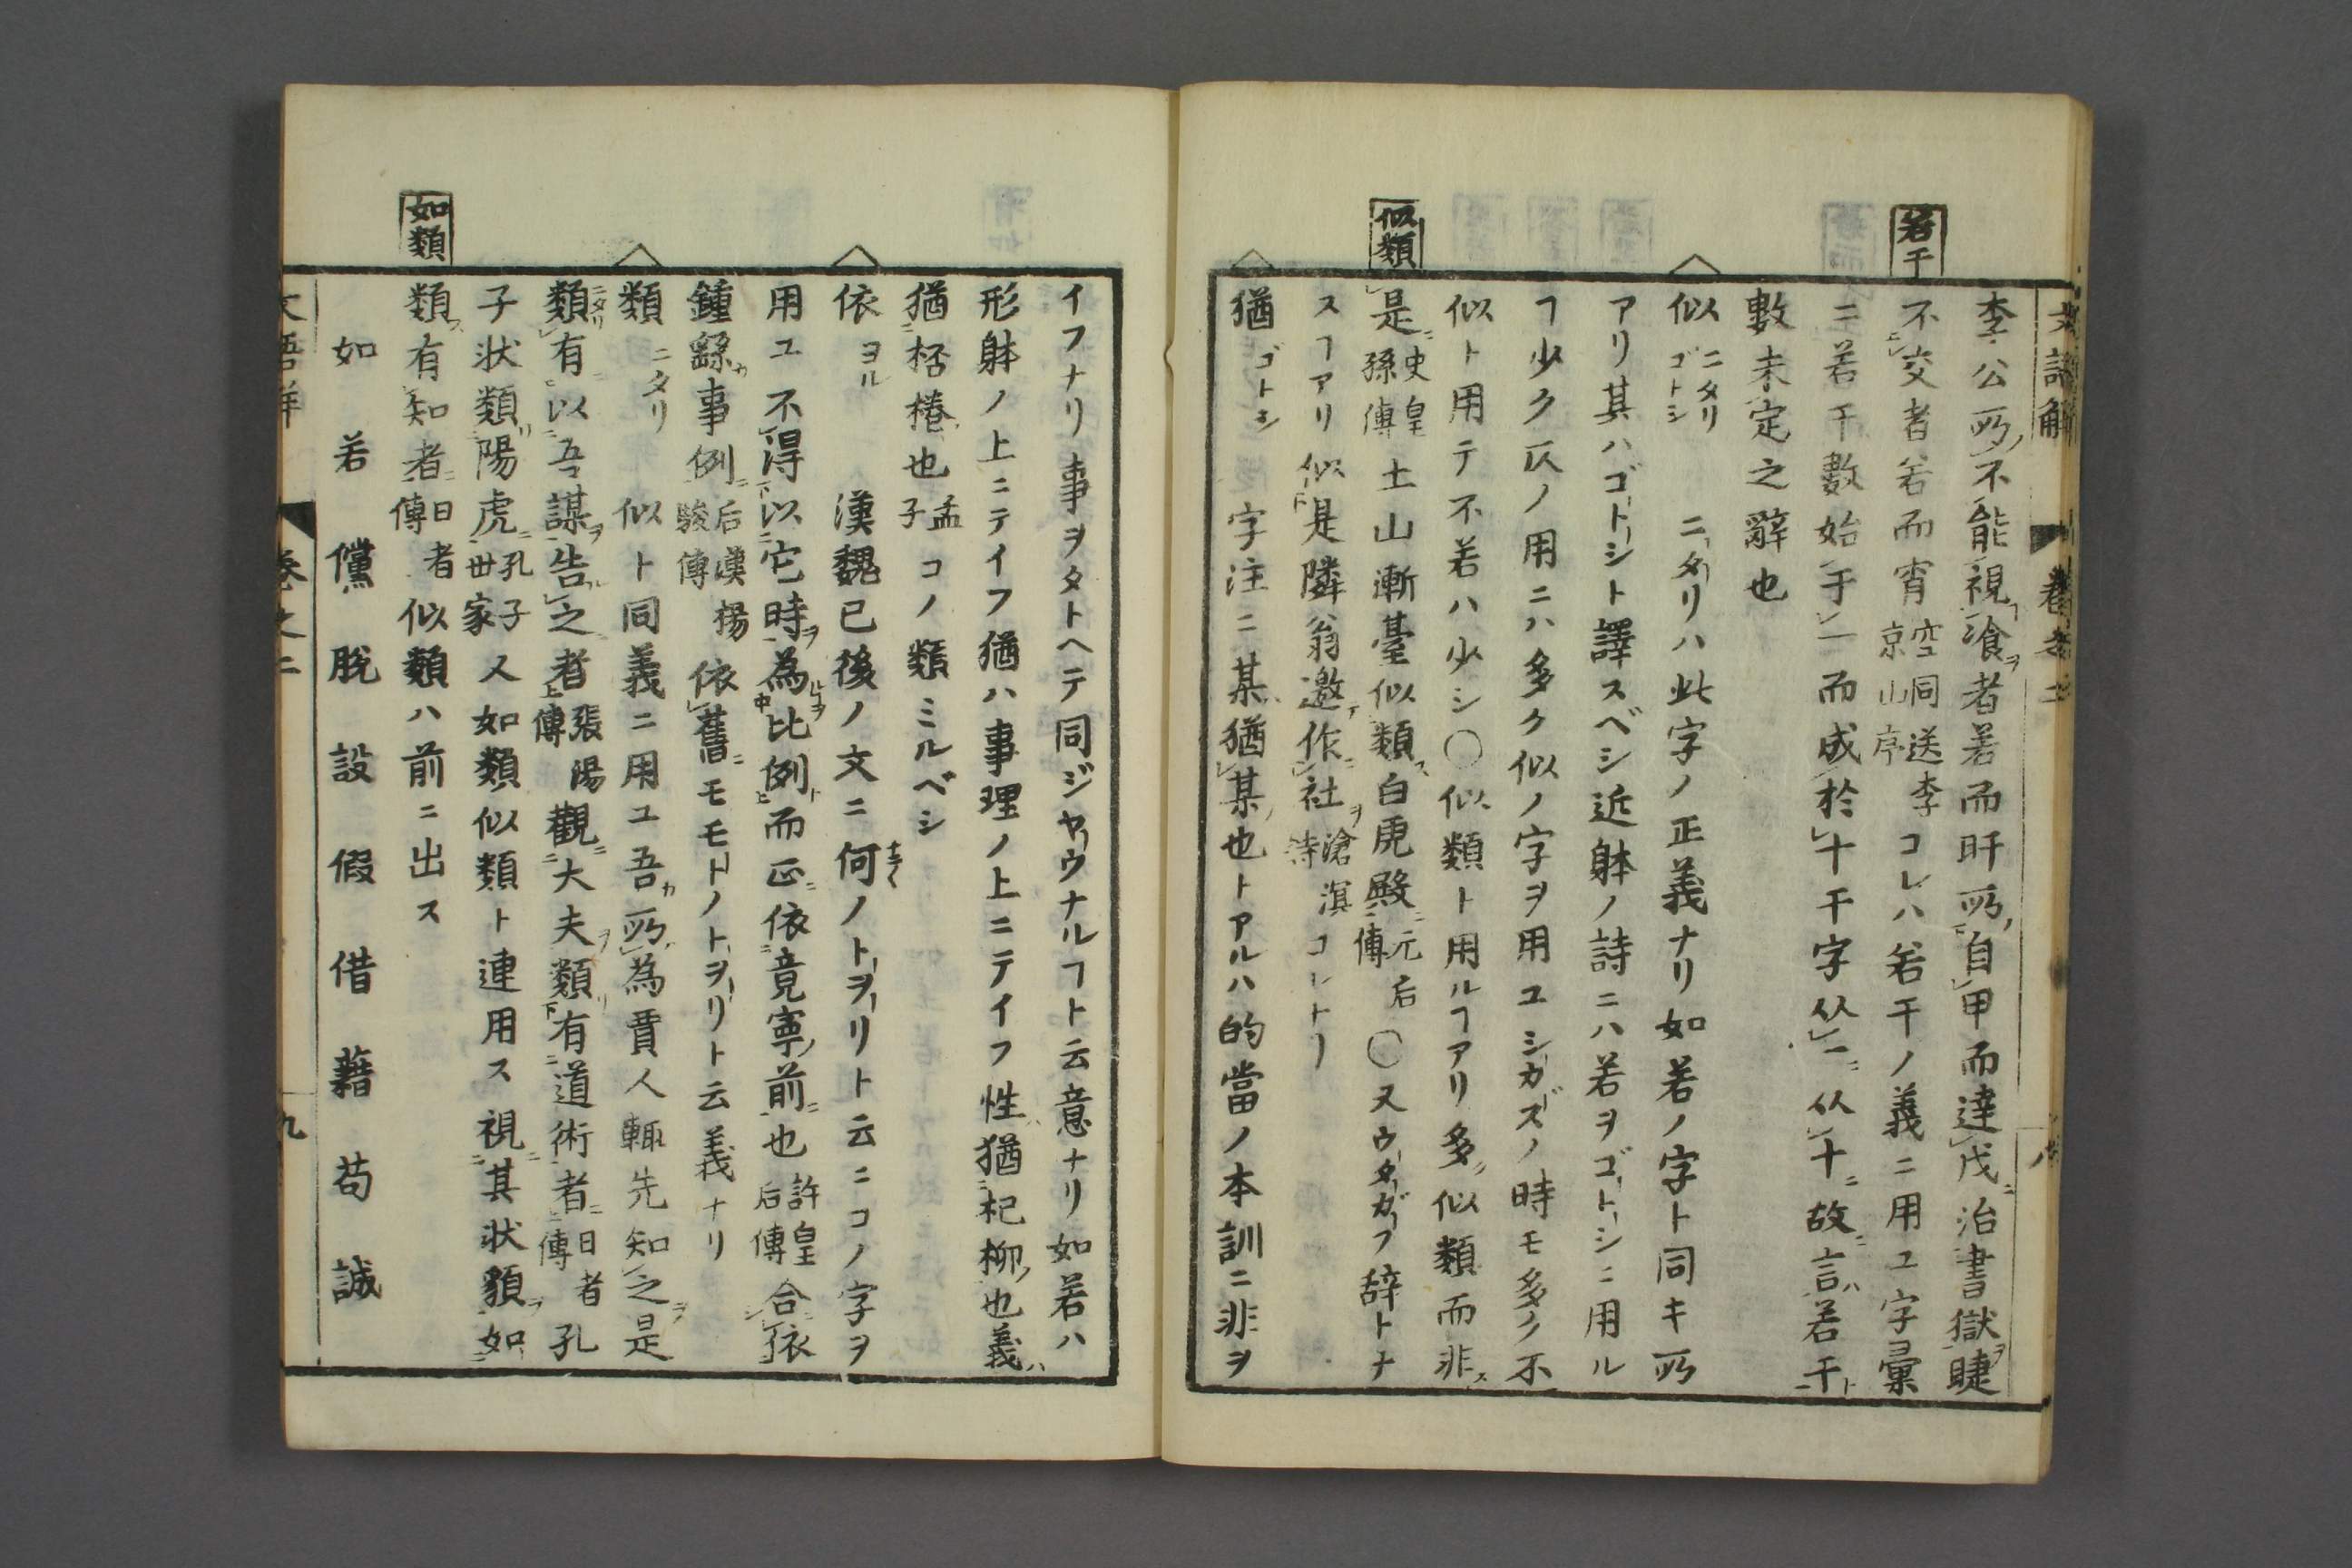 若干
李公所不能視飡者若而旰所自甲而達戊治書獄睫
不交者若而宵空同送李京山序コレハ若干ノ義ニ用ユ字彙
ニ若干數始于一而成於十干字从一从十故言若干
數未定之辭也
似ニタリゴトシ ニタリハ此字ノ正義ナリ如若ノ字ト同キ所
アリ其ハゴトシト譯スベシ近躰ノ詩ニハ若ヲゴトシニ用ル
ヿ少ク仄ノ用ニハ多ク似ノ字ヲ用ユシカズノ時モ多ク不
似ト用テ不若ハ少シ〇似類ト用ルヿアリ多似類而非
似類
是史皇孫傳土山漸臺似類白虎殿元后傳〇又ウタガフ辞トナ
スヿアリ似是隣翁邀作社滄溟詩コレトリ
猶ゴトシ 字注ニ某猶某也トアルハ的當ノ本訓ニ非ヲ
イフナリ事ヲタトヘテ同ジヤウナルヿト云意ナリ如若ハ
形躰ノ上ニテイフ猶ハ事理ノ上ニテイフ性猶杞柳也義
猶桮棬也孟子コノ類ミルベシ
依ヨル 漢魏已後ノ文ニ何ノトヲリト云ニコノ字ヲ
用ユ不得以它時為比例而正依竟寧前也許皇后傳合依
鍾繇事例后漢楊駿傳依舊モモトノトヲリト云義ナリ
類ニタリ 似ト同義ニ用ユ吾所為賈人輙先知之是
類有以吾謀告之者張湯傳觀大夫類有道術者日者傳孔
子狀類陽虎孔子世家又如類似類ト連用ス視其狀貌如
如類
類有知者日者傳似類ハ前ニ出ス
如 若 儻 脫 設 假 借 藉 苟 誠
卷之二
九